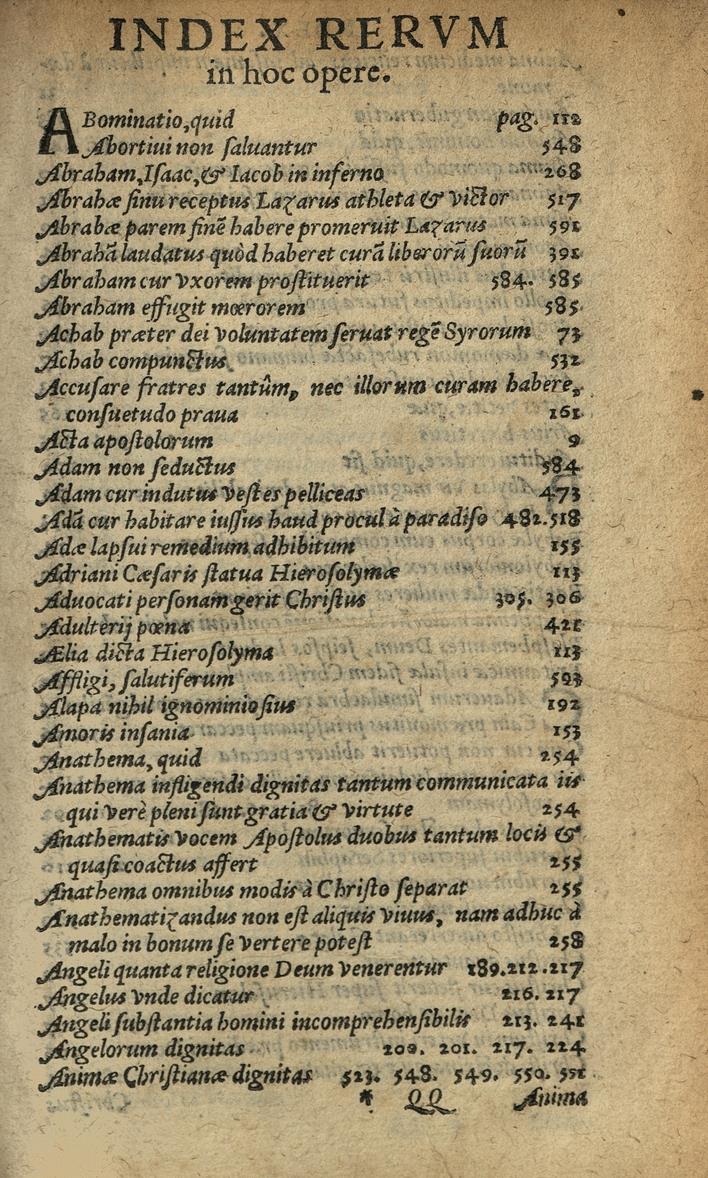 INDEX RERVM
in hoc opere.
ABominatio, quid pag. 112
Abortiui non ſaluantur 548
Abraham, Iſaac, & Iacob in inferno 268
Abrahæ ſinu receptus Lazarus athleta & victor 517
Abrabæ parem ſinē habere promeruit Lazarus 591
Abrahā laudatus quòd haberet curā liberorū ſuorū 391
Abraham cur vxorem proſtituerit 584. 585
Abraham effugit mœrorem 585
Achab præter dei voluntatem ſeruat regē Syrorum 73
Achab compunctus 532
Accuſare fratres tantûm, nec illorum curam habere,
conſuetudo praua 161
Acta apoſtolorum 9
Adam non ſeductus 584
Adam cur indutus veſtes pelliceas 473
Adā cur habitare iuſſus haud procul à paradiſo 482.518
Adæ lapſui remedium adhibitum 155
Adriani Cæſaris ſtatua Hieroſolymæ 113
Aduocati perſonam gerit Chriſtus 305. 306
Adulterij pœna 421
Ælia dicta Hieroſolyma 113
Affligi, ſalutiferum 503
Alapa nihil ignominioſius 192
Amoris inſania 153
Anathema, quid 254
Anathema infligendi dignitas tantum communicata iis
qui verè pleni ſunt gratia & virtute 254
Anathematis vocem Apoſtolus duobus tantum locis &
quaſi coactus affert 255
Anathema omnibus modis à Chriſto ſeparat 255
Anathematizandus non eſt aliquis viuus, nam adhuc à
malo in bonum ſe vertere poteſt 258
Angeli quanta religione Deum venerentur 189.212.217
Angelus vnde dicatur 216. 217
Angeli ſubſtantia homini incomprehenſibilis 213. 241
Angelorum dignitas 200. 201. 217. 224
Animæ Chriſtianæ dignitas 523. 548. 549. 550. 551
* QQ Anima